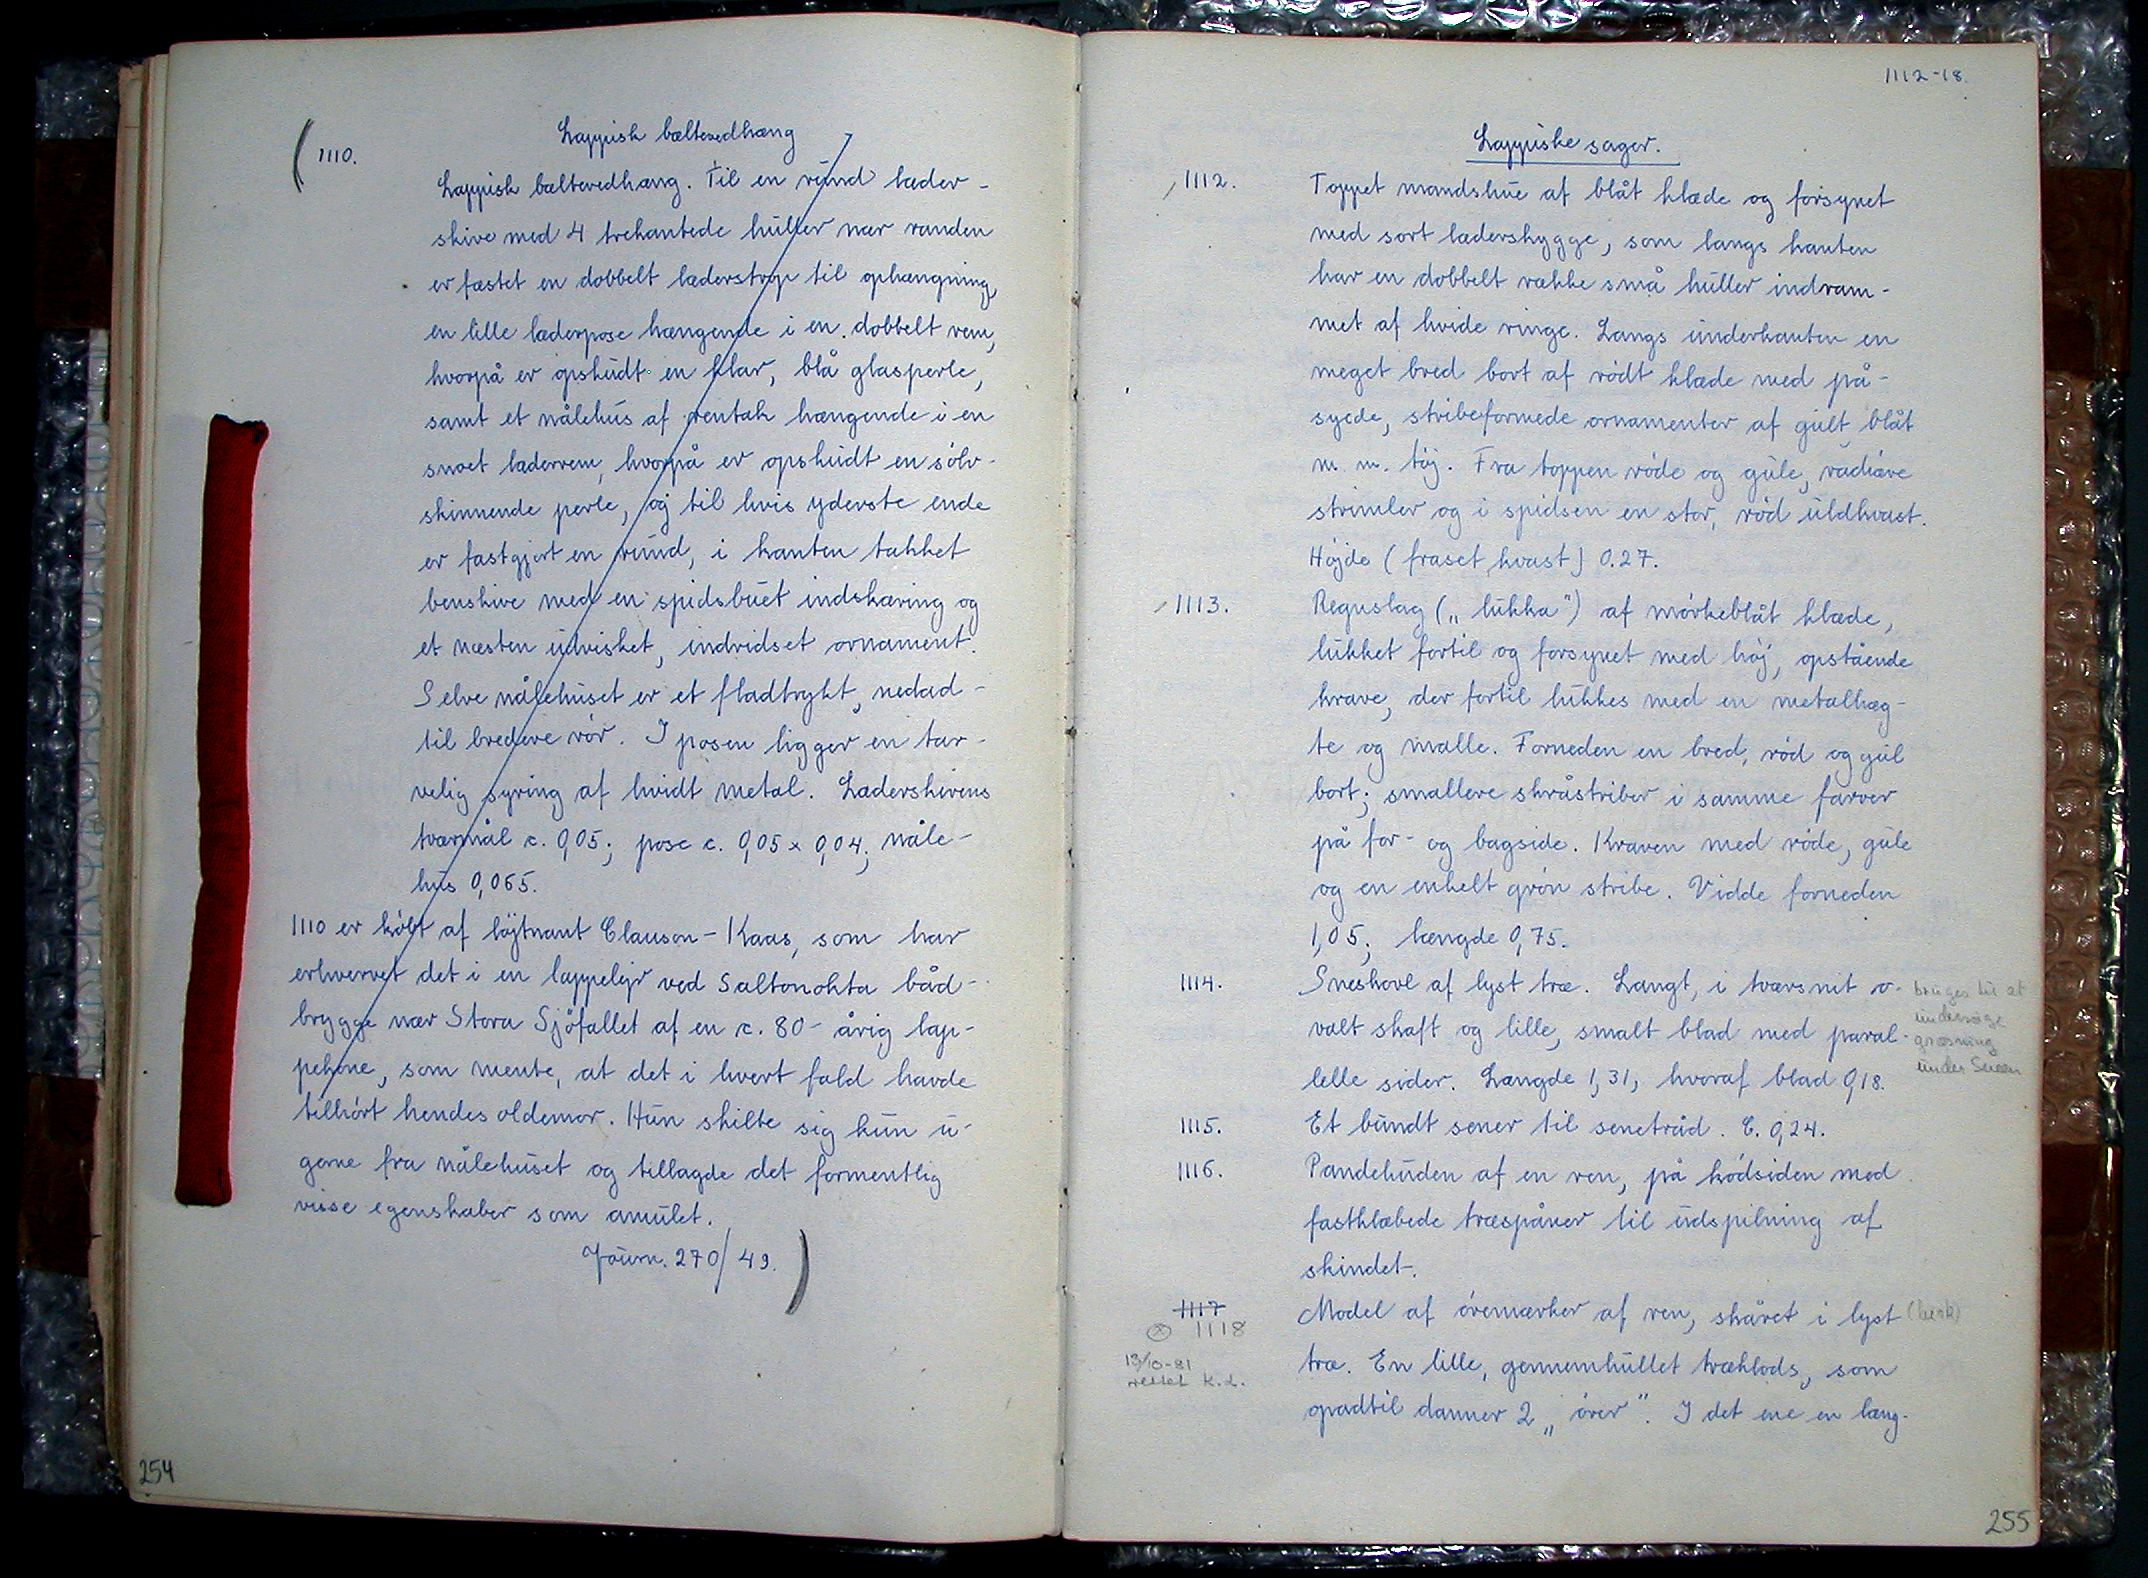 Lappisk bæltevedhæng
1110.
Lappisk bæltevedhæng. Til en rund læder-
skive med 4 trekantede huller nær randen
er fæstet en dobbelt læderstrop til ophængning,
en lille læderpose hængende i en dobbelt rem,
hvorpå er opskudt en klar, blå glasperle,
samt et nålehus af rentak hængende i en
snoet læderrem, hvorpå er opskudt en sölv-
skinnende perle, og til hvis yderste ende
er fastgjort en rund, i kanten takket
benskive med en spidsbuet indskæring og
et næsten udvisket, indridset ornament.
Selve nålehuset er et fladtrykt, nedad-
til bredere rör. I posen ligger en tar-
velig syring af hvidt metal. Læderskivens
tværmål c. 0,05; pose c. 0,05 x 0,04; nåle-
hus 0,065.
1110 er köbt af löjtnant Clauson-Kaas, som har
erhvervet det i en lappelejr ved Saltonokta båd-
brygge nær Stora Sjöfallet af en c. 80-årig lap-
pekone, som mente, at det i hvert fald havde
tilhört hendes oldemor. Hun skilte sig kun u-
gerne fra nålehuset og tillagde det formentlig
visse egenskaber som amulet.
Journ. 270/49.
254
1112-18.
Lappiske sager.
1112. Toppet mandshue af blåt klæde og forsynet
med sort læderskygge, som langs kanten
har en dobbelt række små huller indram-
met af hvide ringe. Langs underkanten en
meget bred bort af rödt klæde med på-
syede, stribeformede ornamenter af gult, blåt
m. m. töj. Fra toppen röde og gule, radiære
strimler og i spidsen en stor, röd uldkvast.
Höjde (fraset kvast) 0.27.
1113. Regnslag („lukka") af mörkeblåt klæde,
lukket fortil og forsynet med höj, opstående
krave, der fortil lukkes med en metalhæg-
te og malle. Forneden en bred, röd og gul
bort; smallere skråstriber i samme farver
på for- og bagside. Kraven med röde, gule
og en enkelt grön stribe. Vidde forneden
1,05; længde 0,75.
1114. Sneskovl af lyst træ. Langt, i tværsnit o-
valt skaft og lille, smalt blad med paral-
lelle sider. Længde 1,31, hvoraf blad 0,18.
bruges til at
undersøge
græsning
under Sneen
1115. Et bundt sener til senetråd. C. 0,24.
1116. Pandehuden af en ren, på ködsiden med
fastklæbede træspåner til udspilning af
skindet.
1117 Model af öremærker af ren, skåret i lyst (birk)
1118
13/10-81
rettet K.L.
træ. En lille, gennemhullet træklods, som
opadtil danner 2 „ örer". I det ene en læng-
255